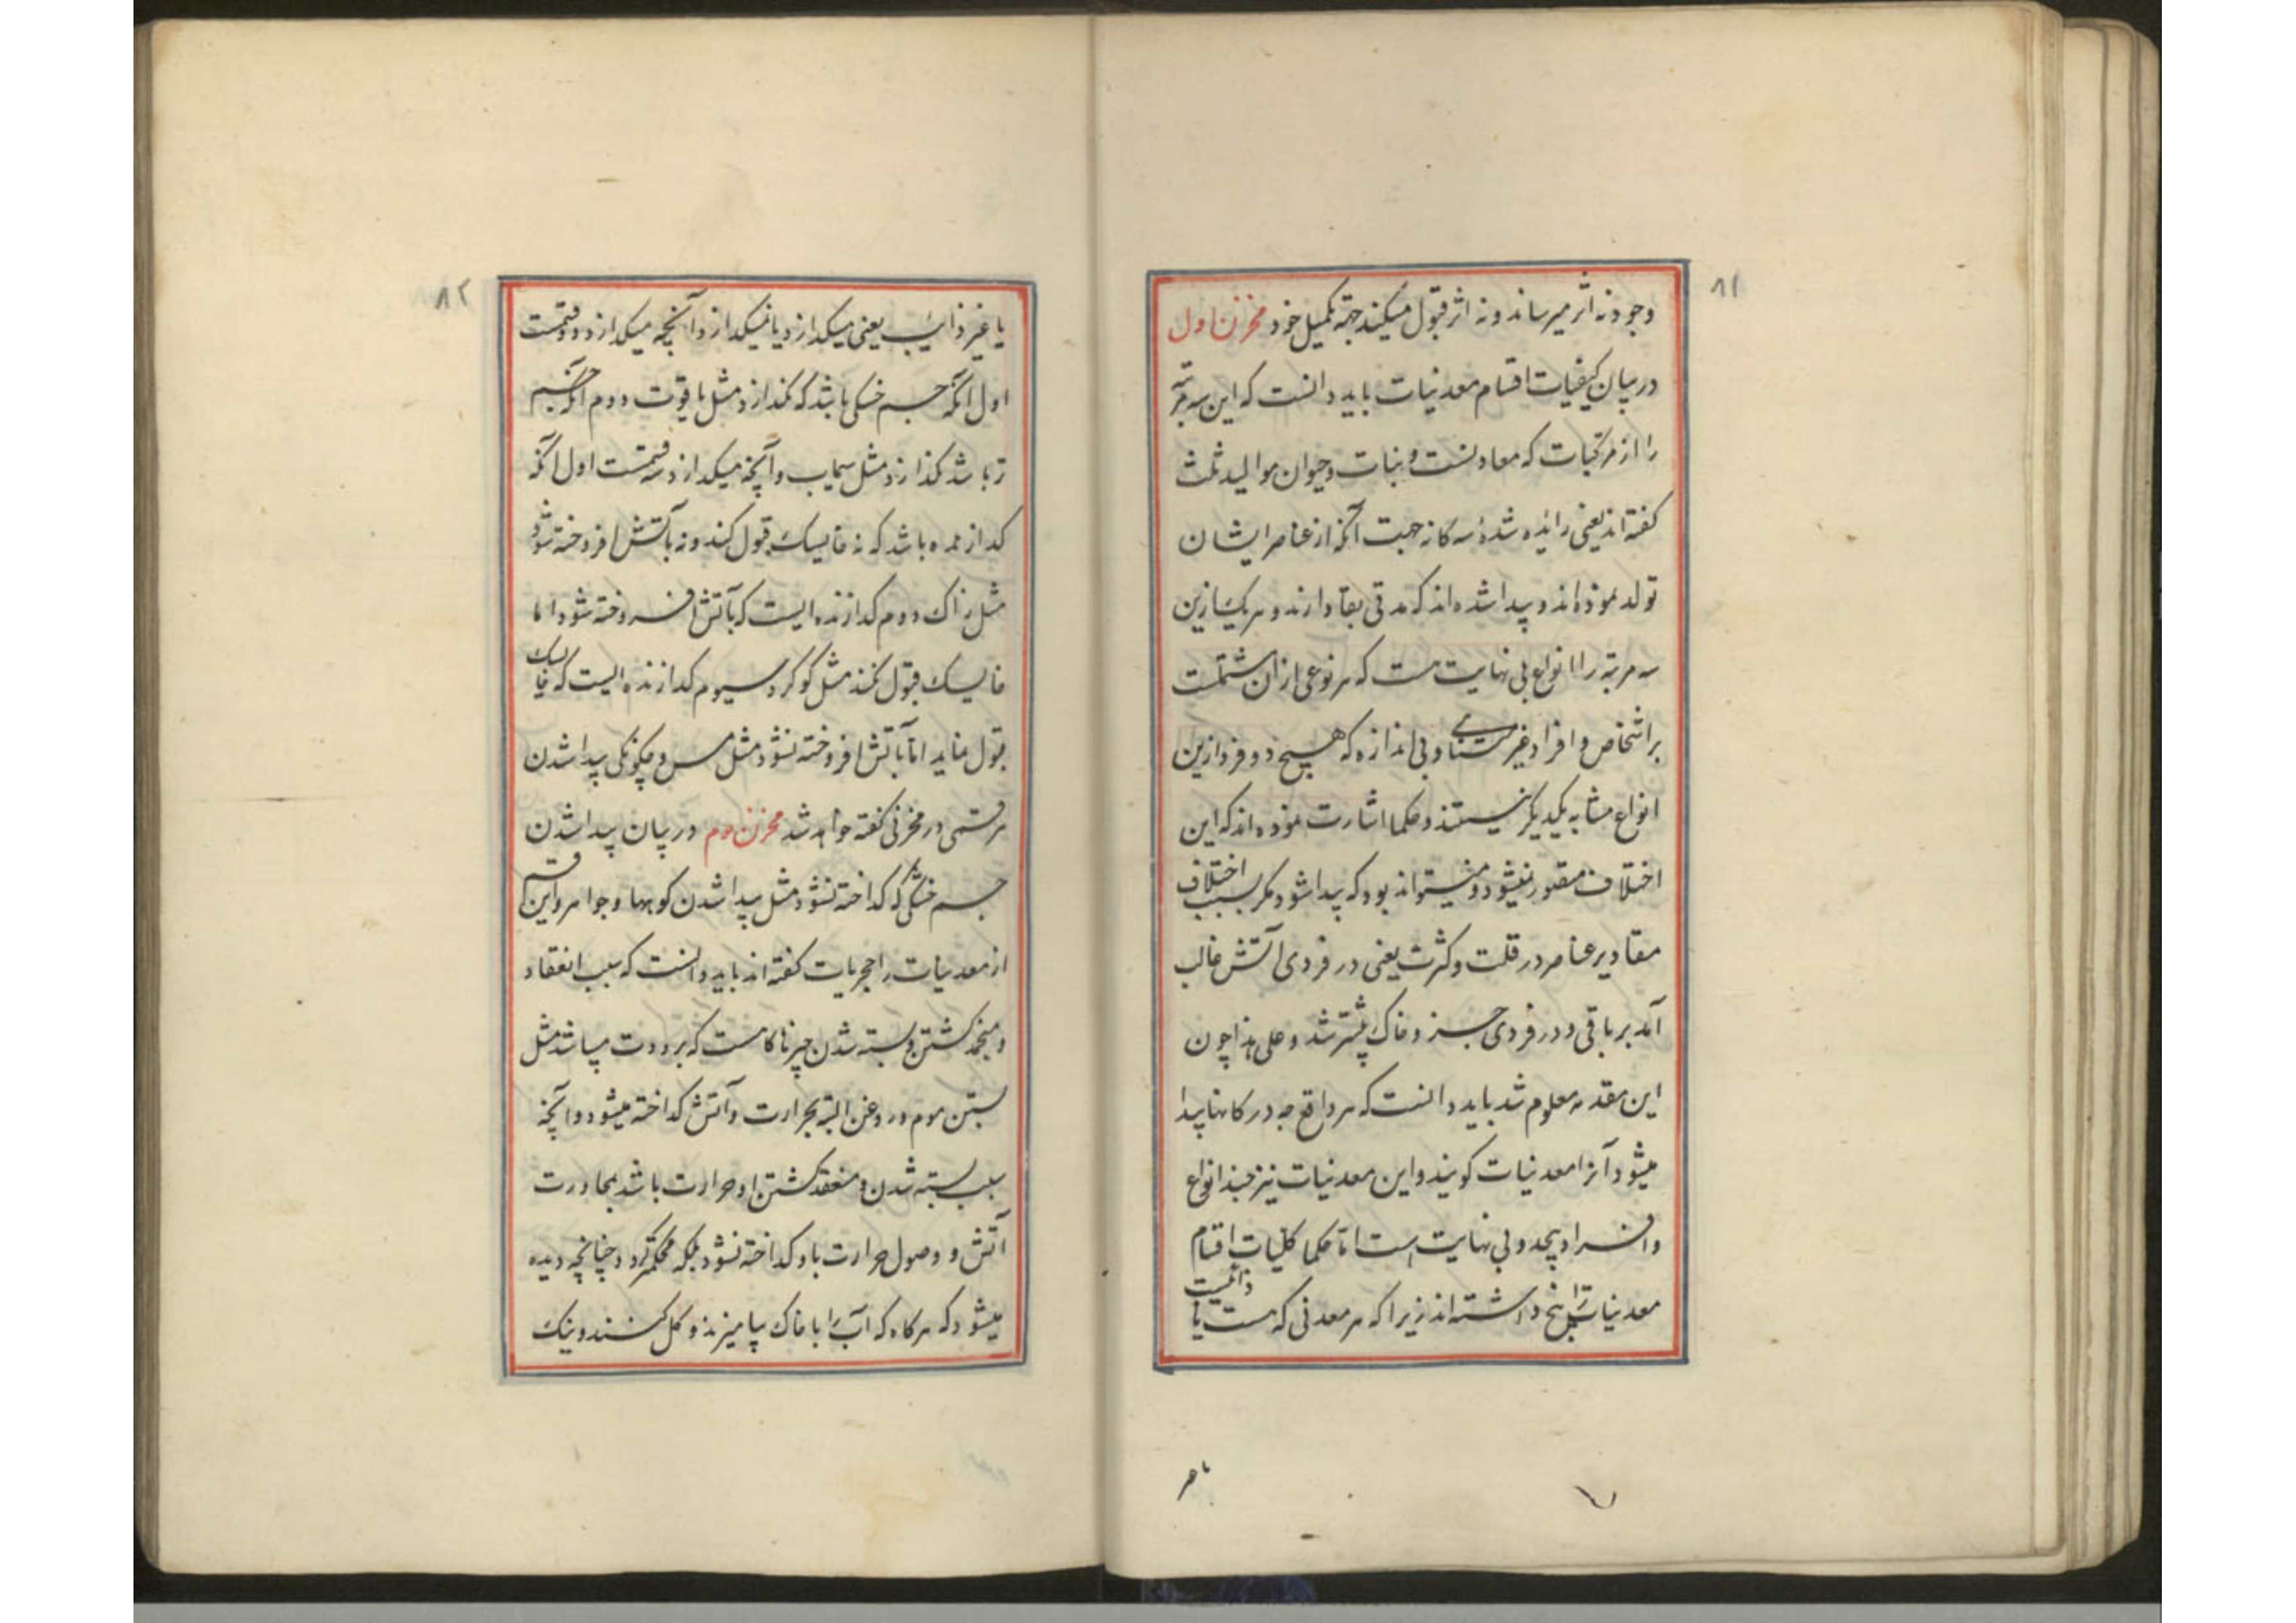 ۸۱
وجود نه اثر میرساند و نه اثر قبول میکند جهة تکمیل خود مخزن اول
در بیان کیفیات اقسام معدنیات باید دانست که این سه مرتبه
را از مرکبات که معادنست و نبات و حیوان موالید ثلث
کفته اند یعنی زائیده شدهٔ سه کانه جهت آنکه از عناصر ایشان
تولد نموده اند و پیدا شده اند که مدتی بقا دارند و هر یک ازین
سه مرتبه را انواع بی نهایت هست که هر نوعی از ان مشتملست
بر اشخاص و افراد غیر متناهی و بی اندازه که هیچ دو فرد ازین
انواع مشابه یکدیکر نیستند و حکما اشارت نموده اند که این
اختلاف متصور نمیشود و نمیتواند بود که پیدا شود مکر بسبب اختلاف
مقادیر عناصر در قلت و کثرت یعنی در فردی آتش غالب
آمد بر باقی و در فردی جزو خاک بیشتر شد و علی هذا چون
این مقدمه معلوم شد باید دانست که هر در کانها پیدا
میشود آنرا معدنیات کویند و این معدنیات نیز چند انواع
و افراد بیحد و بی نهایت است اما حکما کلیات اقسام
معدنیات را پنج داشته اند زیرا که هر معدنی که هست یا ذائبست
۸۲
یا غیر ذائب یعنی میکدازد یا نمیکدازد و آنچه میکدازد دو قسمست
اول آنکه جسم خشکی باشد که نکدازد مثل یاقوت دوم آنکه جسم
تر باشد نکدازد مثل سیماب و آنچه میکدازد سه قسمست اول آنکه
کدازنده باشد که نه خایسک قبول کند و نه بآتش افروخته شود
مثل زاک دوم کدازنده ایست که بآتش افروخته شود اما
خایسک قبول نکند مثل کوکرد سیوم کدازنده ایست که خایسک
قبول نماید اما بآتش افروخته نشود مثل مس و چکونکی پیدا شدن
هر قسمی در مخزنی کفته خواهد شد مخزن دوم در بیان پیدا شدن
جسم خشکی که کداخته نشود مثل پیدا شدن کوهها و جواهر و این قسم
از معدنیات را حجریات کفته اند باید دانست که سبب انعقاد
و منجمد کشتن و بسته شدن چیزها کاهست که برودت میباشد مثل
بستن موم و روغن البته بحرارت و آتش کداخته میشود و آنچه
سبب بسته شدن و منعقد کشتن او حرارت باشد بمجاورت
آتش و وصول حرارت باو کداخته نشود بلکه محکمتر کردد چنانچه دیده
میشود که هرکاه که آب را با خاک بیامیزند و کل کنند و نیک